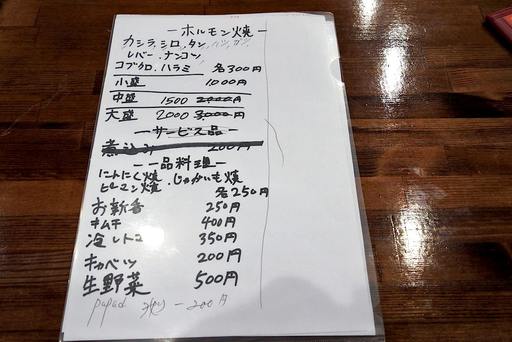 ーホルモン焼ー
カシラ、シロ、タン、ハツ、ガツ、
レバー、ナンコツ
コブクロ、ハラミ 各300円
小盛 1000円
中盛 1500 2000円
大盛 2000 3000円
ーサービス品ー
煮込み 200円
ー一品料理ー
にんにく焼、じゃがいも焼
ピーマン焼 各250円
お新香 250円
キムチ 400円
冷しトマト 350円
キャベツ 200円
生野菜 500円
papad ー200円